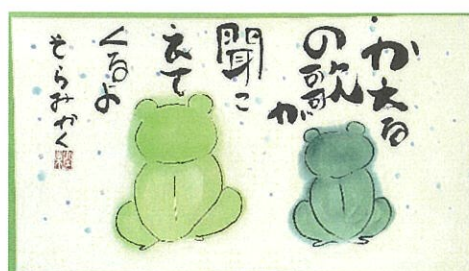 かえる
の歌が
聞こ
えて
くるよ
そらみかく